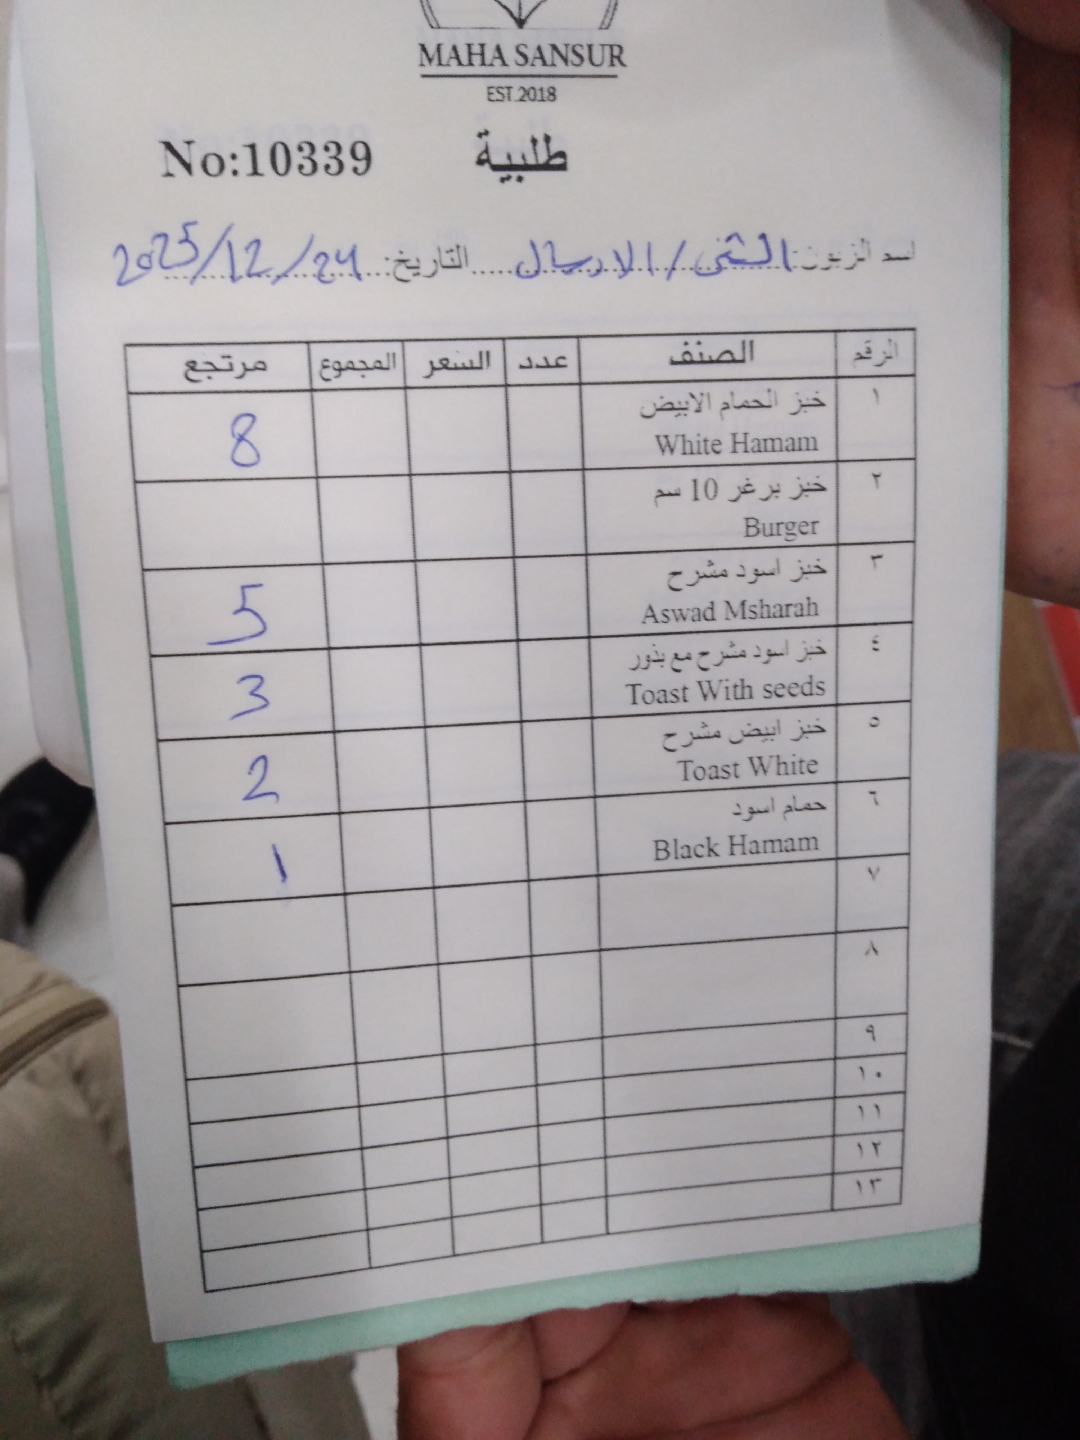 MAHA SANSUR
EST.2018
No:10339 طلبية
اسم الزبون: الثنى / الارسال التاريخ: 2025/12/24
الرقم الصنف عدد السعر المجموع مرتجع
١ خبز الحمام الابيض 8
White Hamam
٢ خبز برغر 10 سم
Burger
٣ خبز اسود مشرح 5
Aswad Msharah
٤ خبز اسود مشرح مع بذور 3
Toast With seeds
٥ خبز ابيض مشرح 2
Toast White
٦ حمام اسود 1
Black Hamam
٧
٨
٩
١٠
١١
١٢
١٣